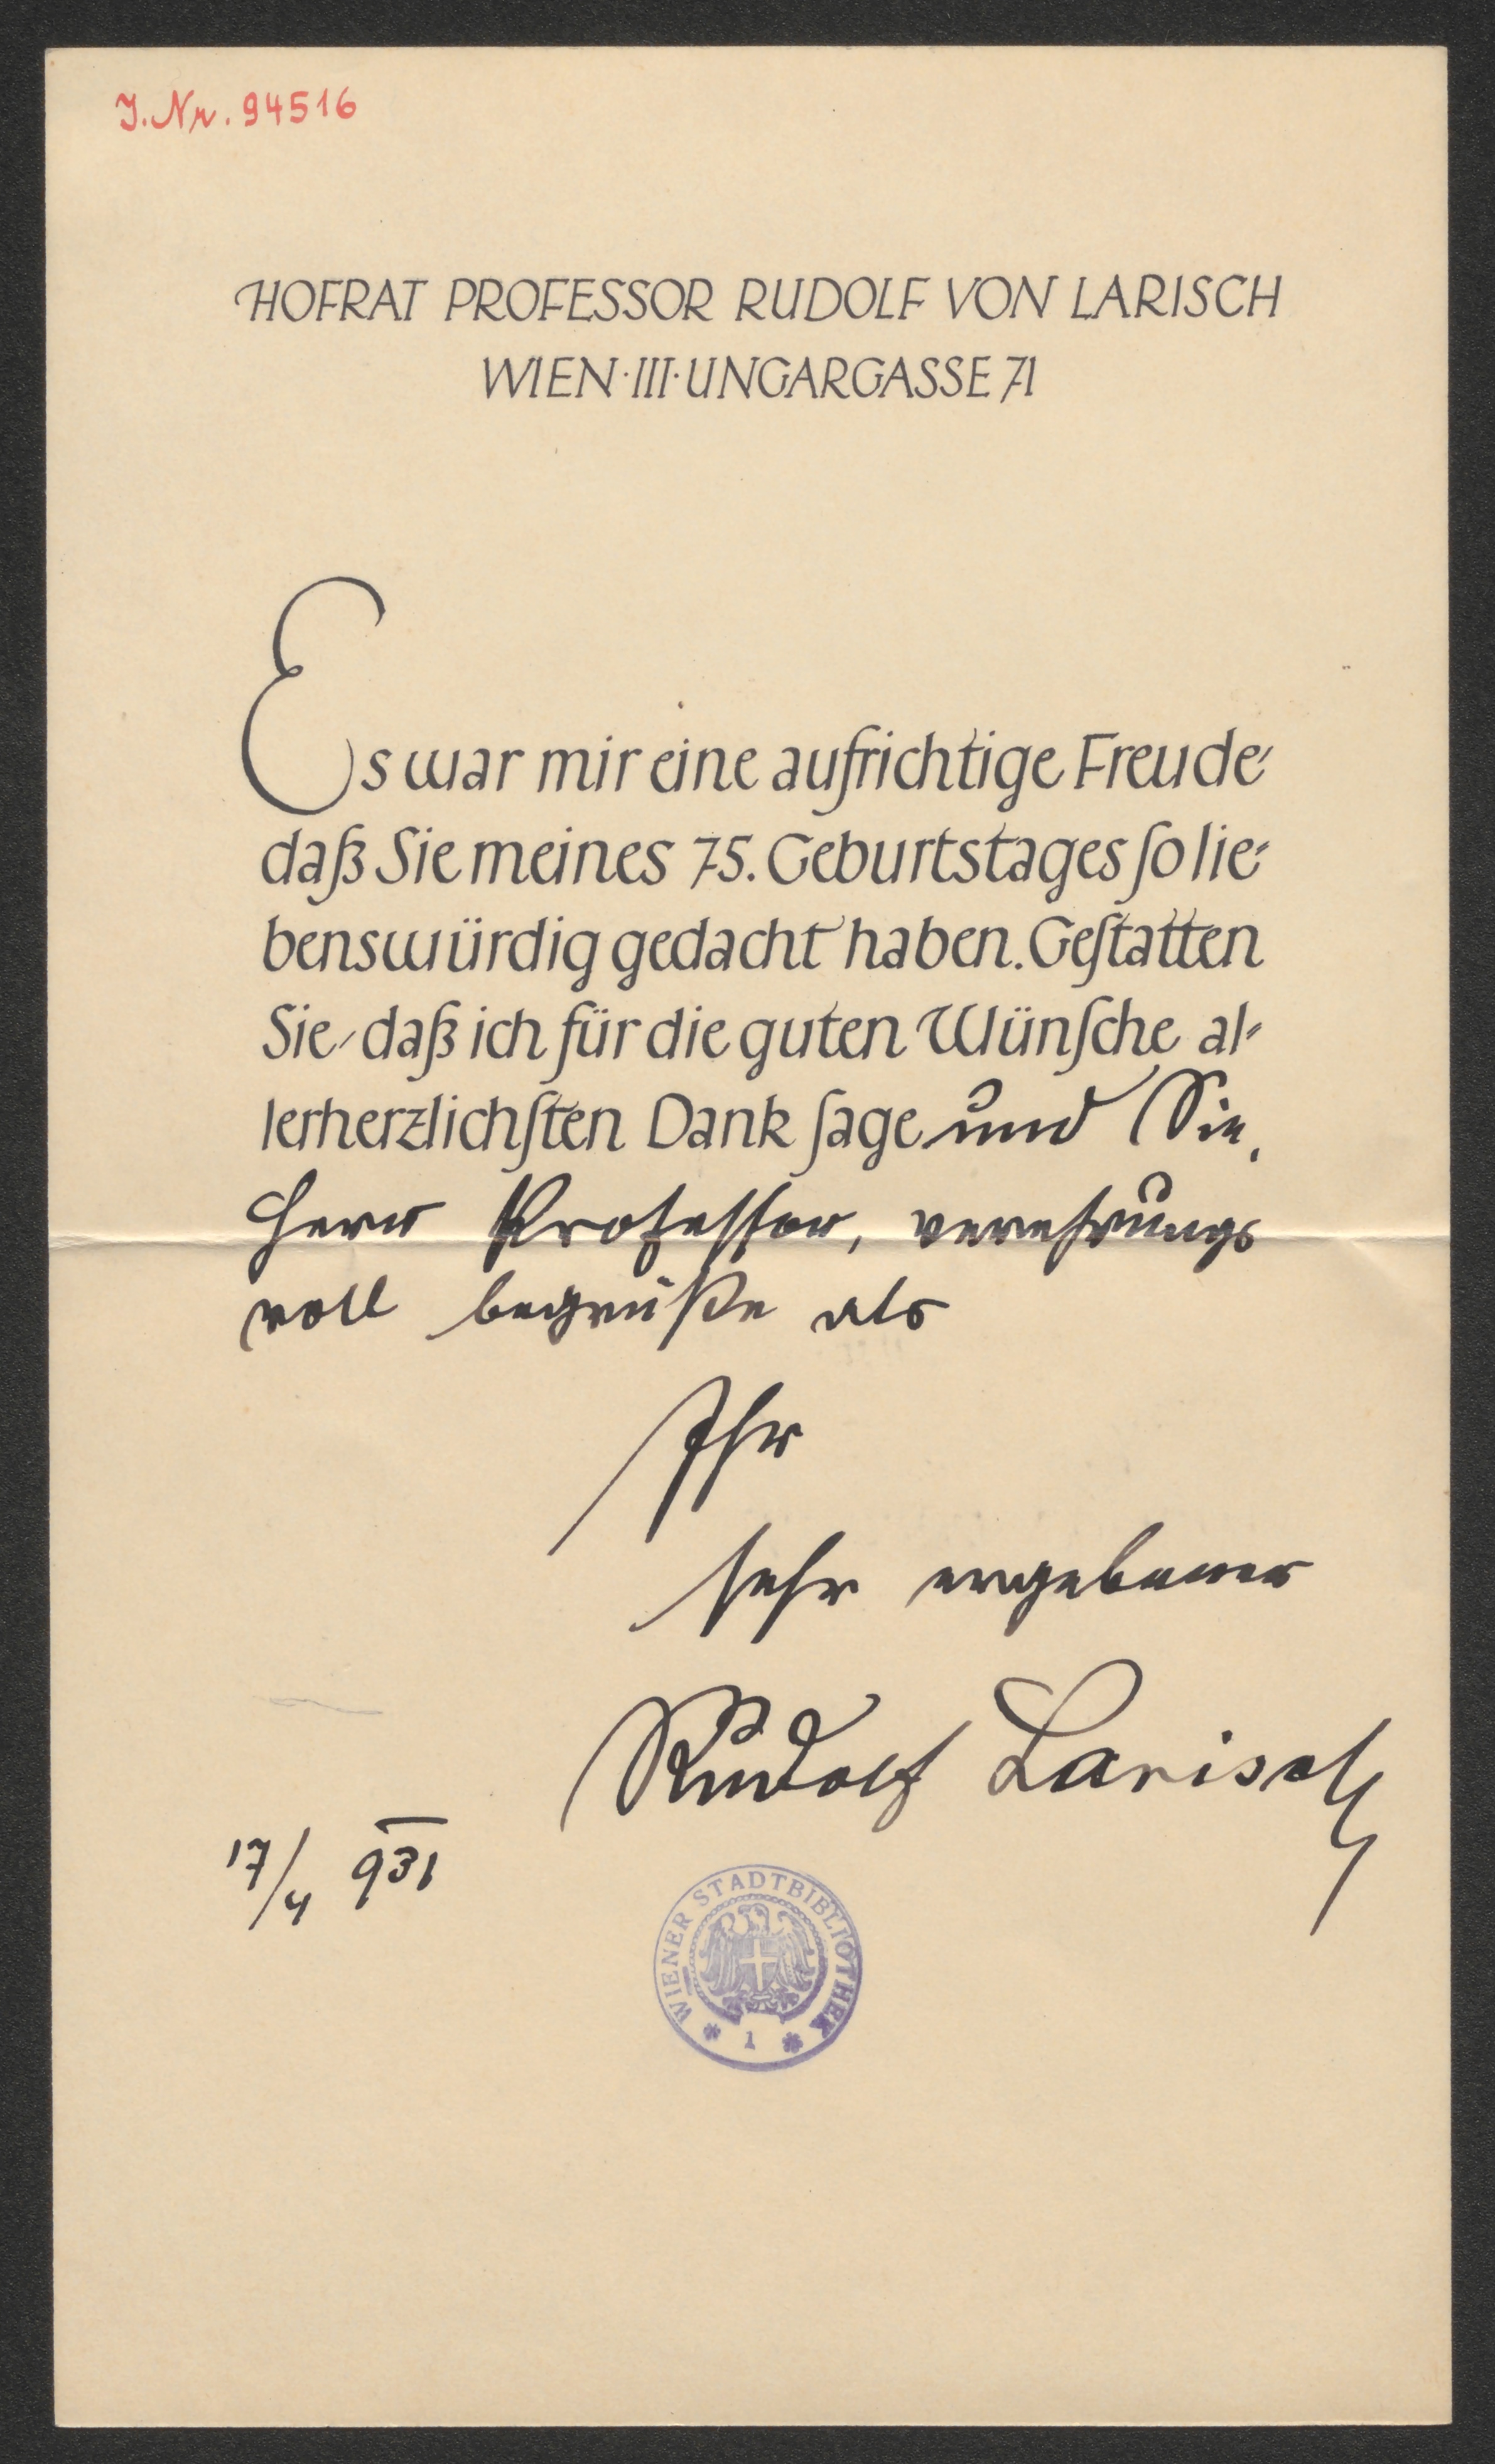 J. Nr. 94516
HOFRAT PROFESSOR RUDOLF VON LARISCH
WIEN·III·UNGARGASSE 71
Es war mir eine aufrichtige Freude,
daß Sie meines 75. Geburtstages ſo lie-
benswürdig gedacht haben. Geſtatten
Sie, daß ich für die guten Wünſche al-
lerherzlichſten Dank ſage und Sie,
Herr Professor, verehrungs
voll begrüße als
Ihr
sehr ergebener
Rudolf Larisch
17/4 931
WIENER STADTBIBLIOTHEK
* 1 *